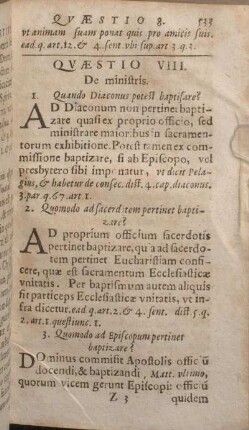 QVÆSTIO 8. 533
vt animam suam ponat quis pro amicit suis.
ead. q. art. 12. & 4. sent. vbi sup. art 3. q. 3.
QVÆSTIO VIII.
De ministris.
1 Quando Diaconus potest baptisare?
AD Diaconum non pertinet bapti-
zare quasi ex proprio officio, sed
ministrare maioribus in sacramen-
torum exhibitione. Potest tamen ex com-
missione baptizare, si ab Episcopo, vel
presbytero sibi imponatur, vt dicit Pela-
gius, & habetur de consec. dist. 4. cap. diaconus.
3. par. q. 67. art 1.
2. Quomodo ad sacerdotem pertinet bapti-
zare?
AD proprium officium sacerdotis
pertinet baptizare, qu a ad sacerdo-
tem pertinet Eucharistiam confi-
cere, quæ est sacramentum Ecclesiasticæ
vnitatis. Per baptismum autem aliquis
fit particeps Ecclesiasticæ vnitatis, vt in-
fra dicetur. ead. q. art. 2. & 4. sent. dist 5. q.
2. art. 1. quæstiunc. 1.
3. Quomodo ad Episcopum pertinet
baptizare?
DOminus commisit Apostolis officiū
docendi, & baptizandi, Matt. vltimo,
quorum vicem gerunt Episcopi: officiū
Z 3 quidem